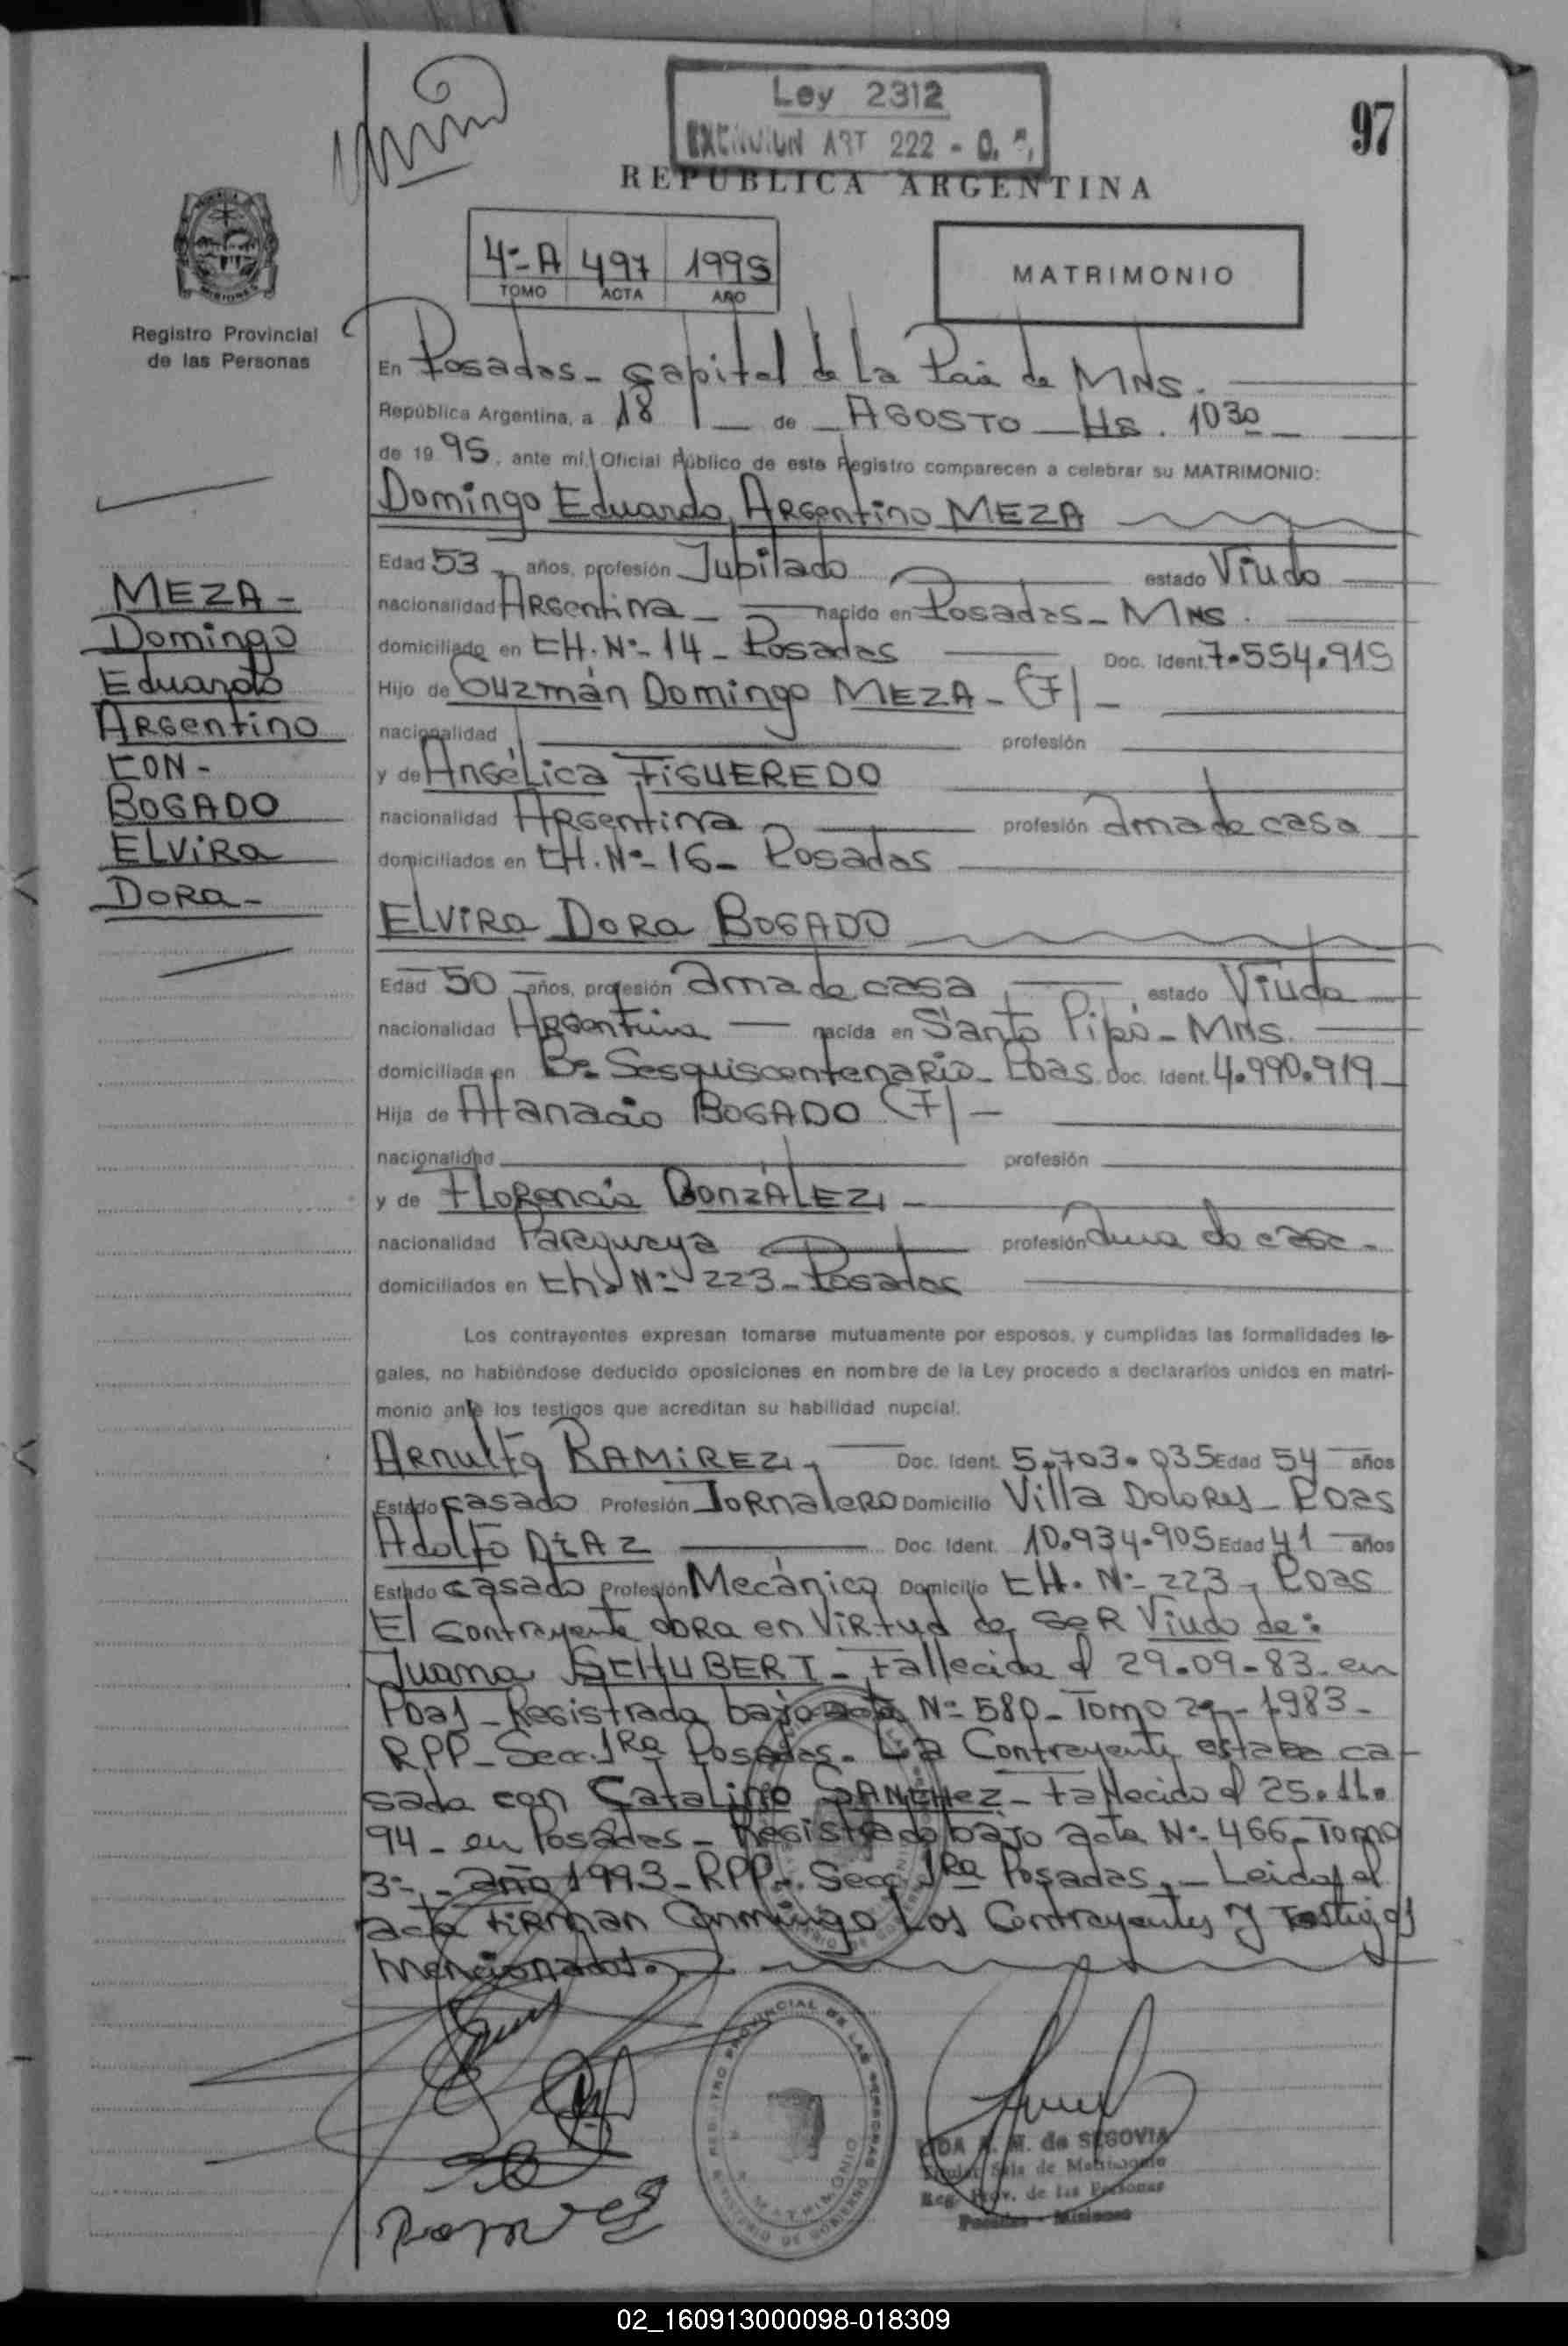 Ley 2312
ART 222 - C. F.
97
REPUBLICA ARGENTINA
4º-A 497 1995
TOMO ACTA AÑO
MATRIMONIO
MISIONES
Registro Provincial
de las Personas
En Posadas - Capital de La Pcia de MNS.
República Argentina, a 18 de AGOSTO Hs. 1030
de 1995, ante mí, Oficial Público de este Registro comparecen a celebrar su MATRIMONIO:
Domingo Eduardo Argentino MEZA
Edad 53 años, profesión Jubilado estado Viudo
nacionalidad Argentina nacido en Posadas - MNS.
domiciliado en CH. Nº- 14 - Posadas Doc. Ident. 7.554.915
Hijo de Guzmán Domingo MEZA - (F) -
nacionalidad profesión
y de Angélica FIGUEREDO
nacionalidad Argentina profesión ama de casa
domiciliados en CH. Nº- 16 - Posadas
MEZA -
Domingo
Eduardo
Argentino
CON -
BOGADO
ELVIRA
DORA -
ELVIRA DORA BOGADO
Edad 50 años, profesión ama de casa estado Viuda
nacionalidad Argentina nacida en Santo Pipó - MNS.
domiciliada en Bº Sesquiscentenario - Poas Doc. Ident. 4.990.919
Hija de Atanacio BOGADO (F) -
nacionalidad profesión
y de Florencia GONZÁLEZ -
nacionalidad Paraguaya profesión ama de casa -
domiciliados en Ch. Nº- 223 - Posadas
Los contrayentes expresan tomarse mutuamente por esposos, y cumplidas las formalidades le-
gales, no habiéndose deducido oposiciones en nombre de la Ley procedo a declararlos unidos en matri-
monio ante los testigos que acreditan su habilidad nupcial.
Arnulfo RAMIREZ - Doc. Ident. 5.703.035 Edad 54 años
Estado Casado Profesión Jornalero Domicilio Villa Dolores - Poas
Adolfo DIAZ Doc. Ident. 10.934.905 Edad 41 años
Estado Casado Profesión Mecánico Domicilio CH. Nº- 223 - Poas
El Contrayente obra en Virtud de ser Viudo de:
Juana SCHUBERT - Fallecida el 29.09-83 - en
Poas - Registrada bajo acta Nº 580 - Tomo 2º - 1983 -
RPP - Secc. 1Ra Posadas. La Contrayente estaba ca-
sada con Catalino SANCHEZ - Fallecido el 25.11.
94 - en Posadas - Registrado bajo acta Nº- 466 - Tomo
3º - año 1993 - RPP - Secc 1Ra Posadas. - Leida el
acta Firman Conmingo Los Contrayentes y Testigos
Mencionados.
REGISTRO PROVINCIAL DE LAS PERSONAS
MATRIMONIO
MINISTERIO DE GOBIERNO
M. de SEGOVIA
Sala de Matrimonio
Reg. Prov. de las Personas
Posadas - Misiones
02_160913000098-018309